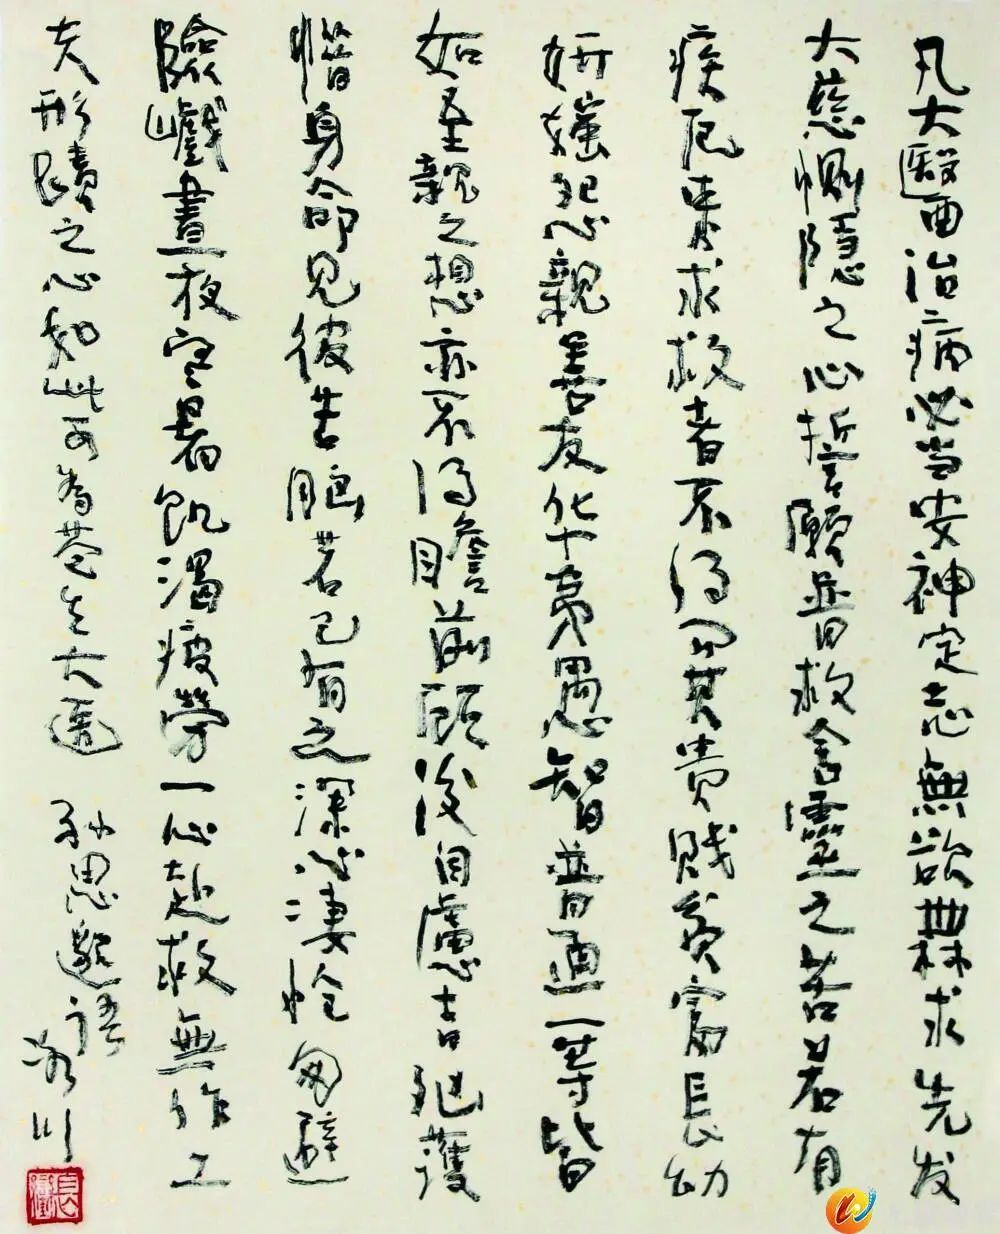 凡大醫西治病必当安神定志無欲無求先发
大慈惻隱之心誓願普救含靈之苦若有
疾厄来求救者不得问其贵贱貧富長幼
妍蚩怨親善友华夷愚智普同一等皆
如至親之想亦不得瞻前顧後自慮吉凶護
惜身命見彼苦惱若己有之深心凄愴勿避
險巇晝夜寒暑飢渴疲勞一心赴救無作工
夫形蹟之心如此可為苍生大医
孙思邈語